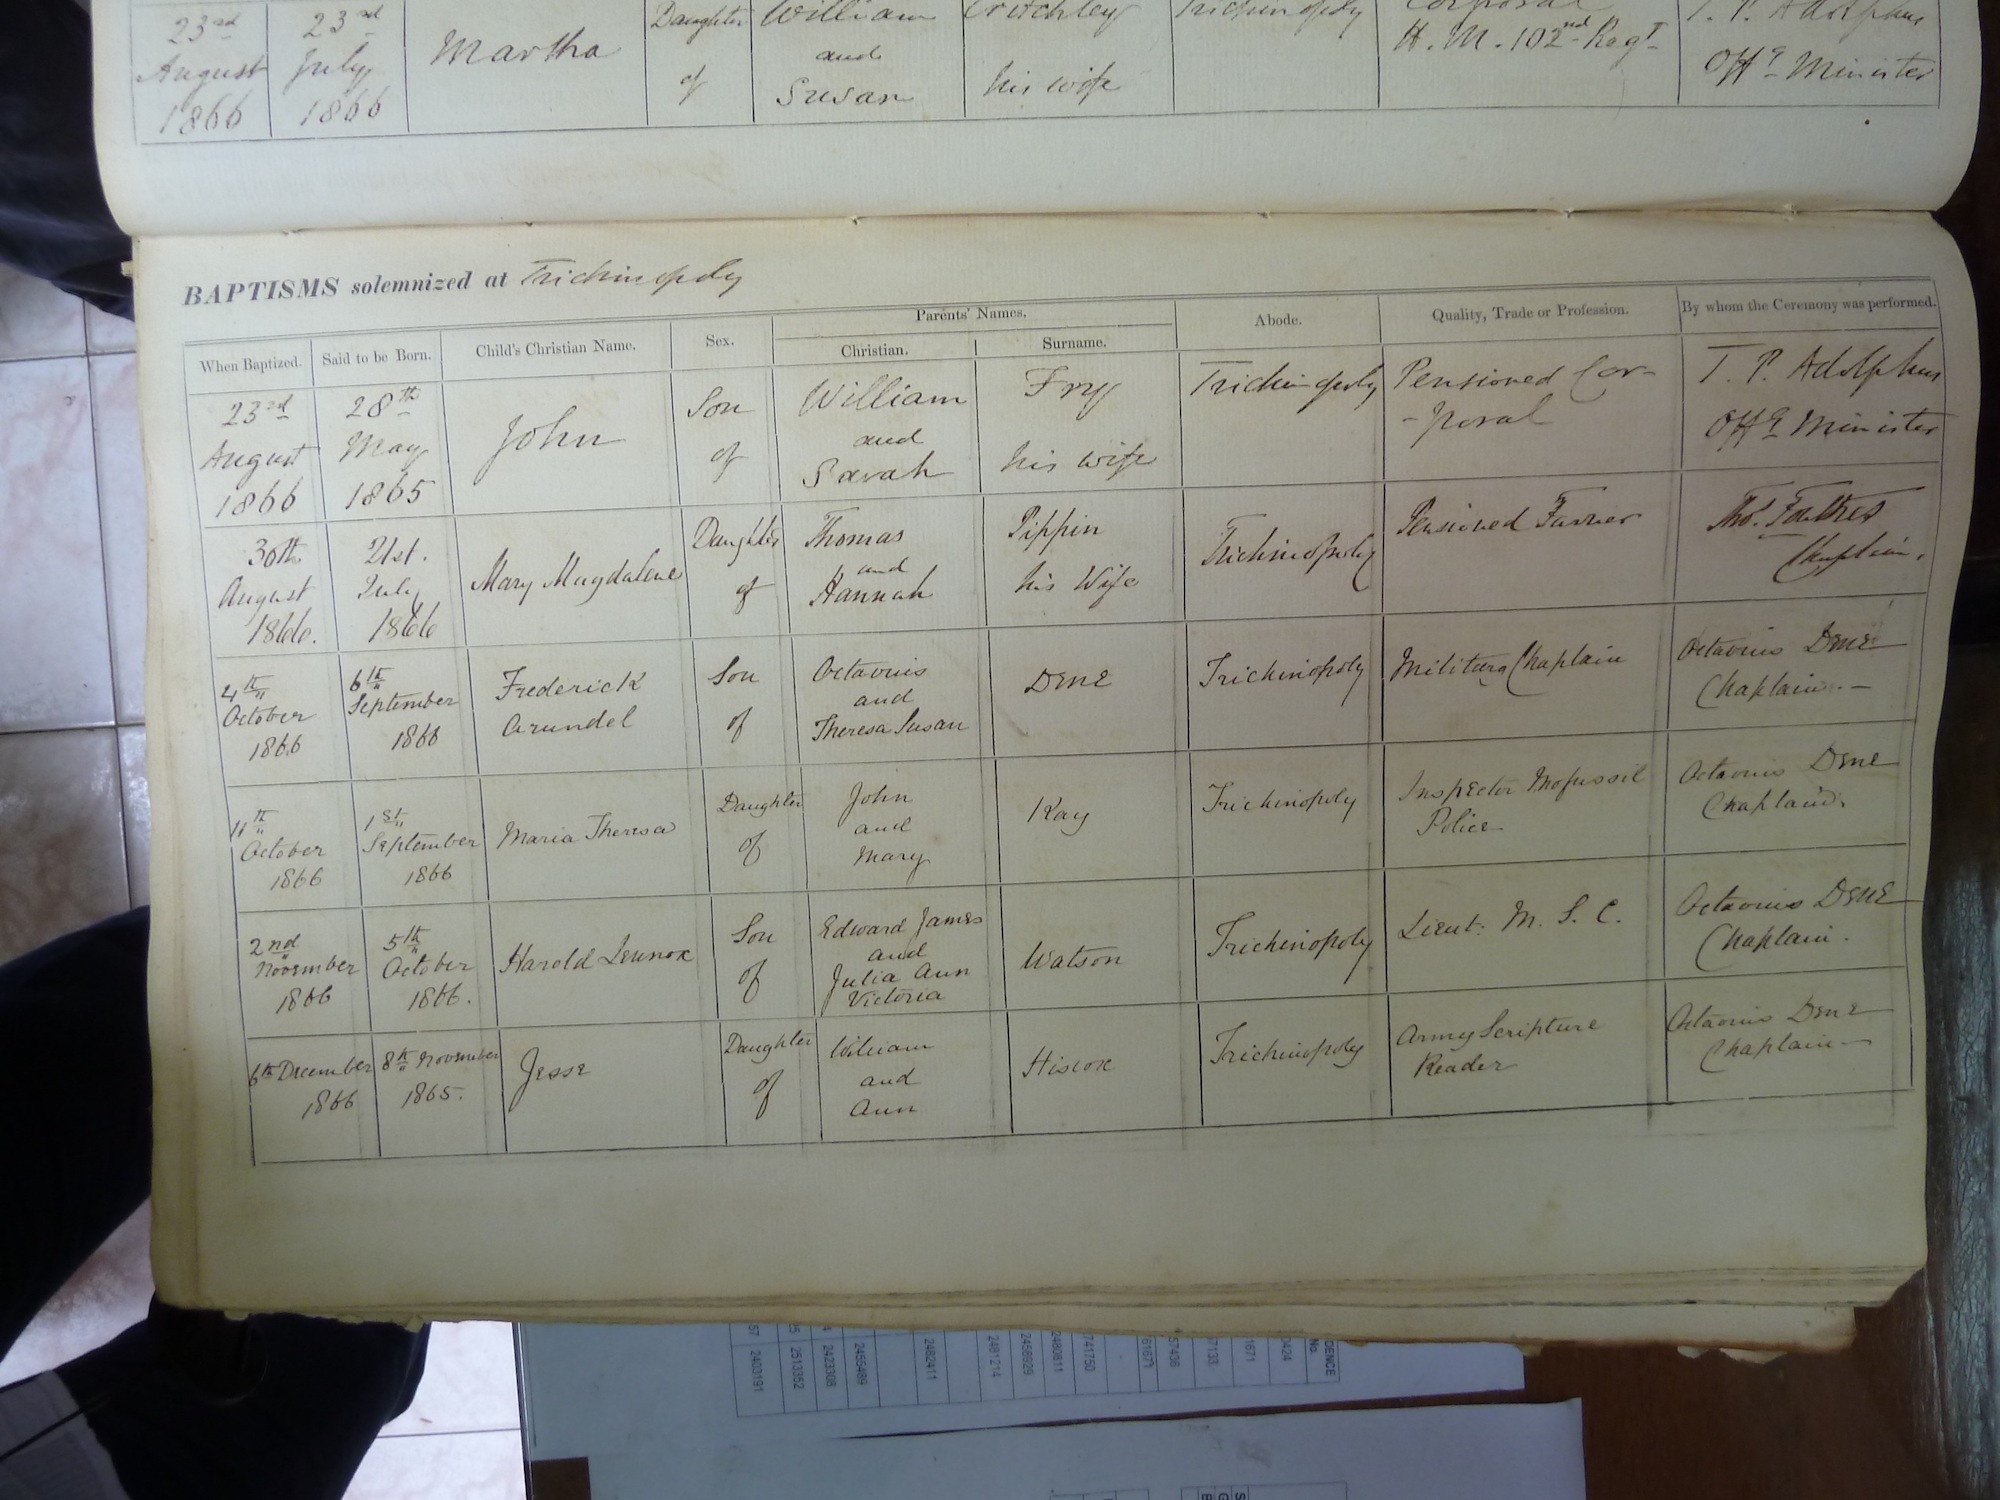 23rd August 1866
23rd July 1866
Martha
Daughter of
William and Susan
Critchley his wife
Trichinopoly
Corporal H. M. 102nd Regt
T. P. Adolphus Offg Minister
BAPTISMS solemnized at Trichinopoly
When Baptized.
Said to be Born.
Child's Christian Name.
Sex.
Parents' Names.
Christian.
Surname.
Abode.
Quality, Trade or Profession.
By whom the Ceremony was performed.
23rd August 1866
28th May 1865
John
Son of
William and Sarah
Fry his wife
Trichinopoly
Pensioned Cor-
-poral
T. P. Adolphus
Offg Minister
30th August 1866.
21st. July 1866
Mary Magdalene
Daughter of
Thomas and Hannah
Pippin his Wife
Trichinopoly
Pensioned Farrier
Thos. Foulkes
Chaplain.
4th October 1866
6th September 1866
Frederick Arundel
Son of
Octavius and Theresa Susan
Dene
Trichinopoly
Military Chaplain
Octavius Dene
Chaplain.—
11th October 1866
1st September 1866
Maria Theresa
Daughter of
John and Mary
Kay
Trichinopoly
Inspector Mofussil
Police
Octavius Dene
Chaplain.
2nd November 1866
5th October 1866.
Harold Lennox
Son of
Edward James and Julia Ann Victoria
Watson
Trichinopoly
Lieut. M. S. C.
Octavius Dene
Chaplain.
6th December 1866
8th November 1865.
Jesse
Daughter of
William and Ann
Hiscox
Trichinopoly
Army Scripture
Reader
Octavius Dene
Chaplain—
2403191
2513352
2423308
2455489
2482411
2481214
2456929
2480811
741750
81671
57436
7133
1671
0424
DENCE
No.